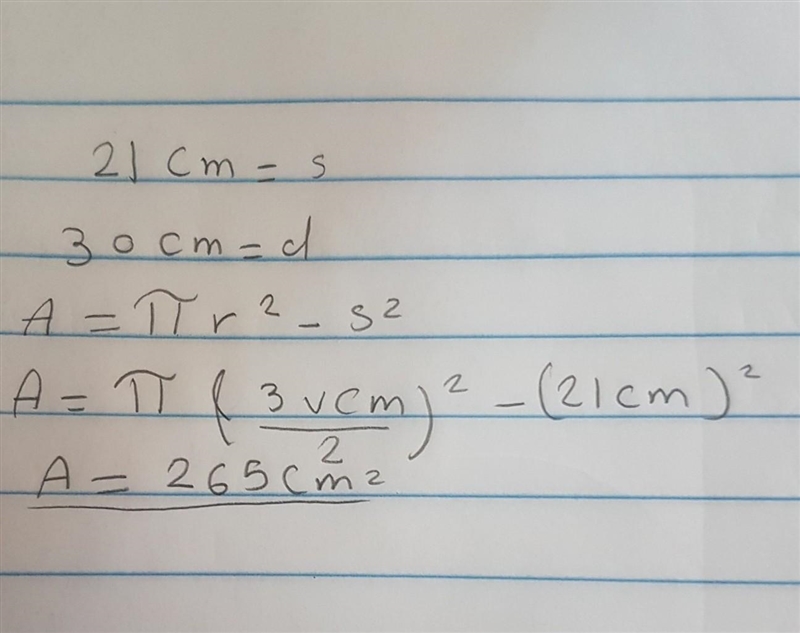 21 cm = s
30 cm = d
A = πr² - s²
A = π (3vcm/2)² - (21cm)²
A = 265cm2